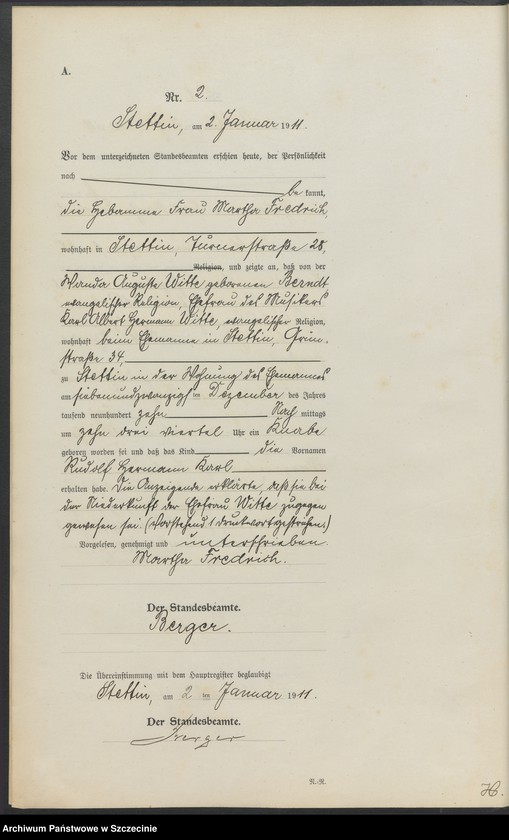 A.
Nr. 2.
Stettin, am 2. Januar 1911.
Vor dem unterzeichneten Standesbeamten erschien heute, der Persönlichkeit
nach
be kannt,
die Hebamme Frau Martha Fredrich,
wohnhaft in Stettin, Turnerstraße 28,
Religion, und zeigte an, daß von der
Wanda Auguste Witte geborenen Berndt
evangelischer Religion, Ehefrau des Musikers
Karl Albert Hermann Witte, evangelischer Religion,
wohnhaft beim Ehemanne in Stettin, Grün-
straße 34,
zu Stettin in der Wohnung des Ehemannes
am siebenundzwanzigsten Dezember des Jahres
tausend neunhundert zehn Nach mittags
um zehn drei viertel Uhr ein Knabe
geboren worden sei und daß das Kind die Vornamen
Rudolf Hermann Karl
erhalten habe. Die Anzeigende erklärte, daß sie bei
der Niederkunft der Ehefrau Witte zugegen
gewesen sei. (Vorstehend 1 Druckwort gestrichen)
Vorgelesen, genehmigt und unterschrieben.
Martha Fredrich.
Der Standesbeamte.
Berger.
Die Übereinstimmung mit dem Hauptregister beglaubigt
Stettin, am 2 ten Januar 1911.
Der Standesbeamte.
Berger
N.-R.
H.
Archiwum Państwowe w Szczecinie